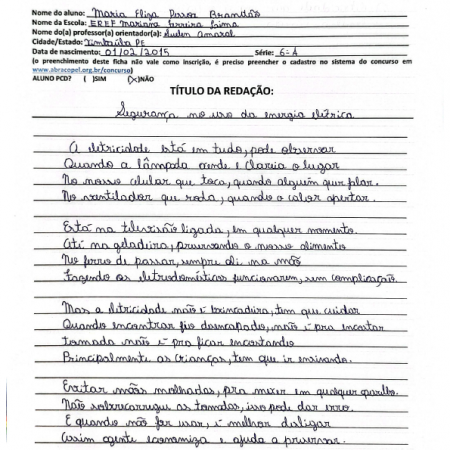 Nome do aluno: Maria Eliza Dessoa Brandão
Nome da Escola: EREF Mariana Ferreira Lima
Nome do(a) professor(a) orientador(a): Suelen Amaral
Cidade/Estado: Timbaúba PE
Data de nascimento: 01/02/2015 Série: 6º A
(o preenchimento deste ficha não vale como inscrição, é preciso preencher o cadastro no sistema do concurso em
www.abracopel.org.br/concurso)
ALUNO PCD? ( )SIM (X)NÃO
TÍTULO DA REDAÇÃO:
Segurança no uso da energia elétrica
A eletricidade está em tudo, pode observar
Quando a lâmpada acende e Clareia o lugar
No nosso celular que toca, quando alguém quer falar.
No ventilador que roda, quando o calor apertar.
Está na televisão ligada, em qualquer momento.
Até na geladeira, preservando o nosso alimento
No ferro de passar, sempre ali na mão
Fazendo os eletrodomésticos funcionarem, sem complicação.
Mas a eletricidade não é brincadeira, tem que cuidar
Quando encontrar fio desencapado, não é pra encostar
tomada não é pra ficar encostando
Principalmente as crianças, tem que ir ensinando.
Evitar mãos molhadas, pra mexer em qualquer aparelho.
Não sobrecarregue as tomadas, isso pode dar erro.
E quando não for usar, é melhor desligar
Assim agente economiza e ajuda a preservar.